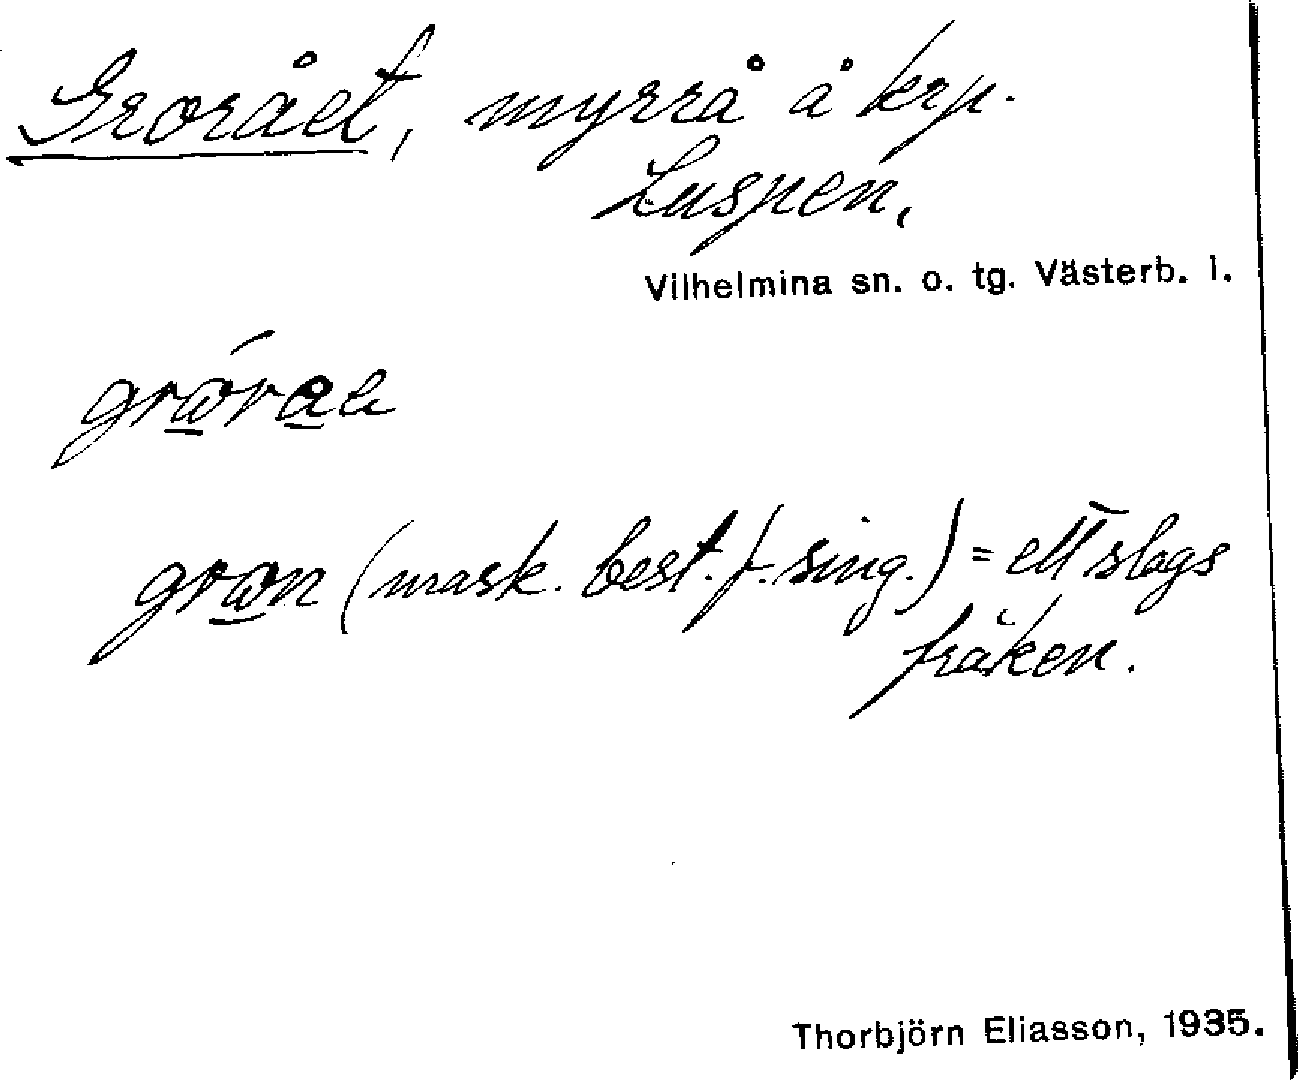 Grorået, myrrå å krp.
Luspen,
Vilhelmina sn. o. tg. Västerb. l.
gron (mask. best. f. sing.) = ett slags
fräken.
Thorbjörn Eliasson, 1935.